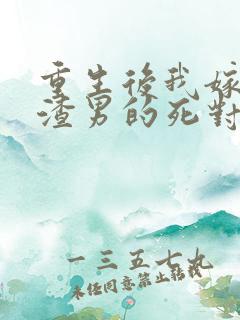 重生後我嫁
渣男的死對
一三五七九
未經同意禁止轉載